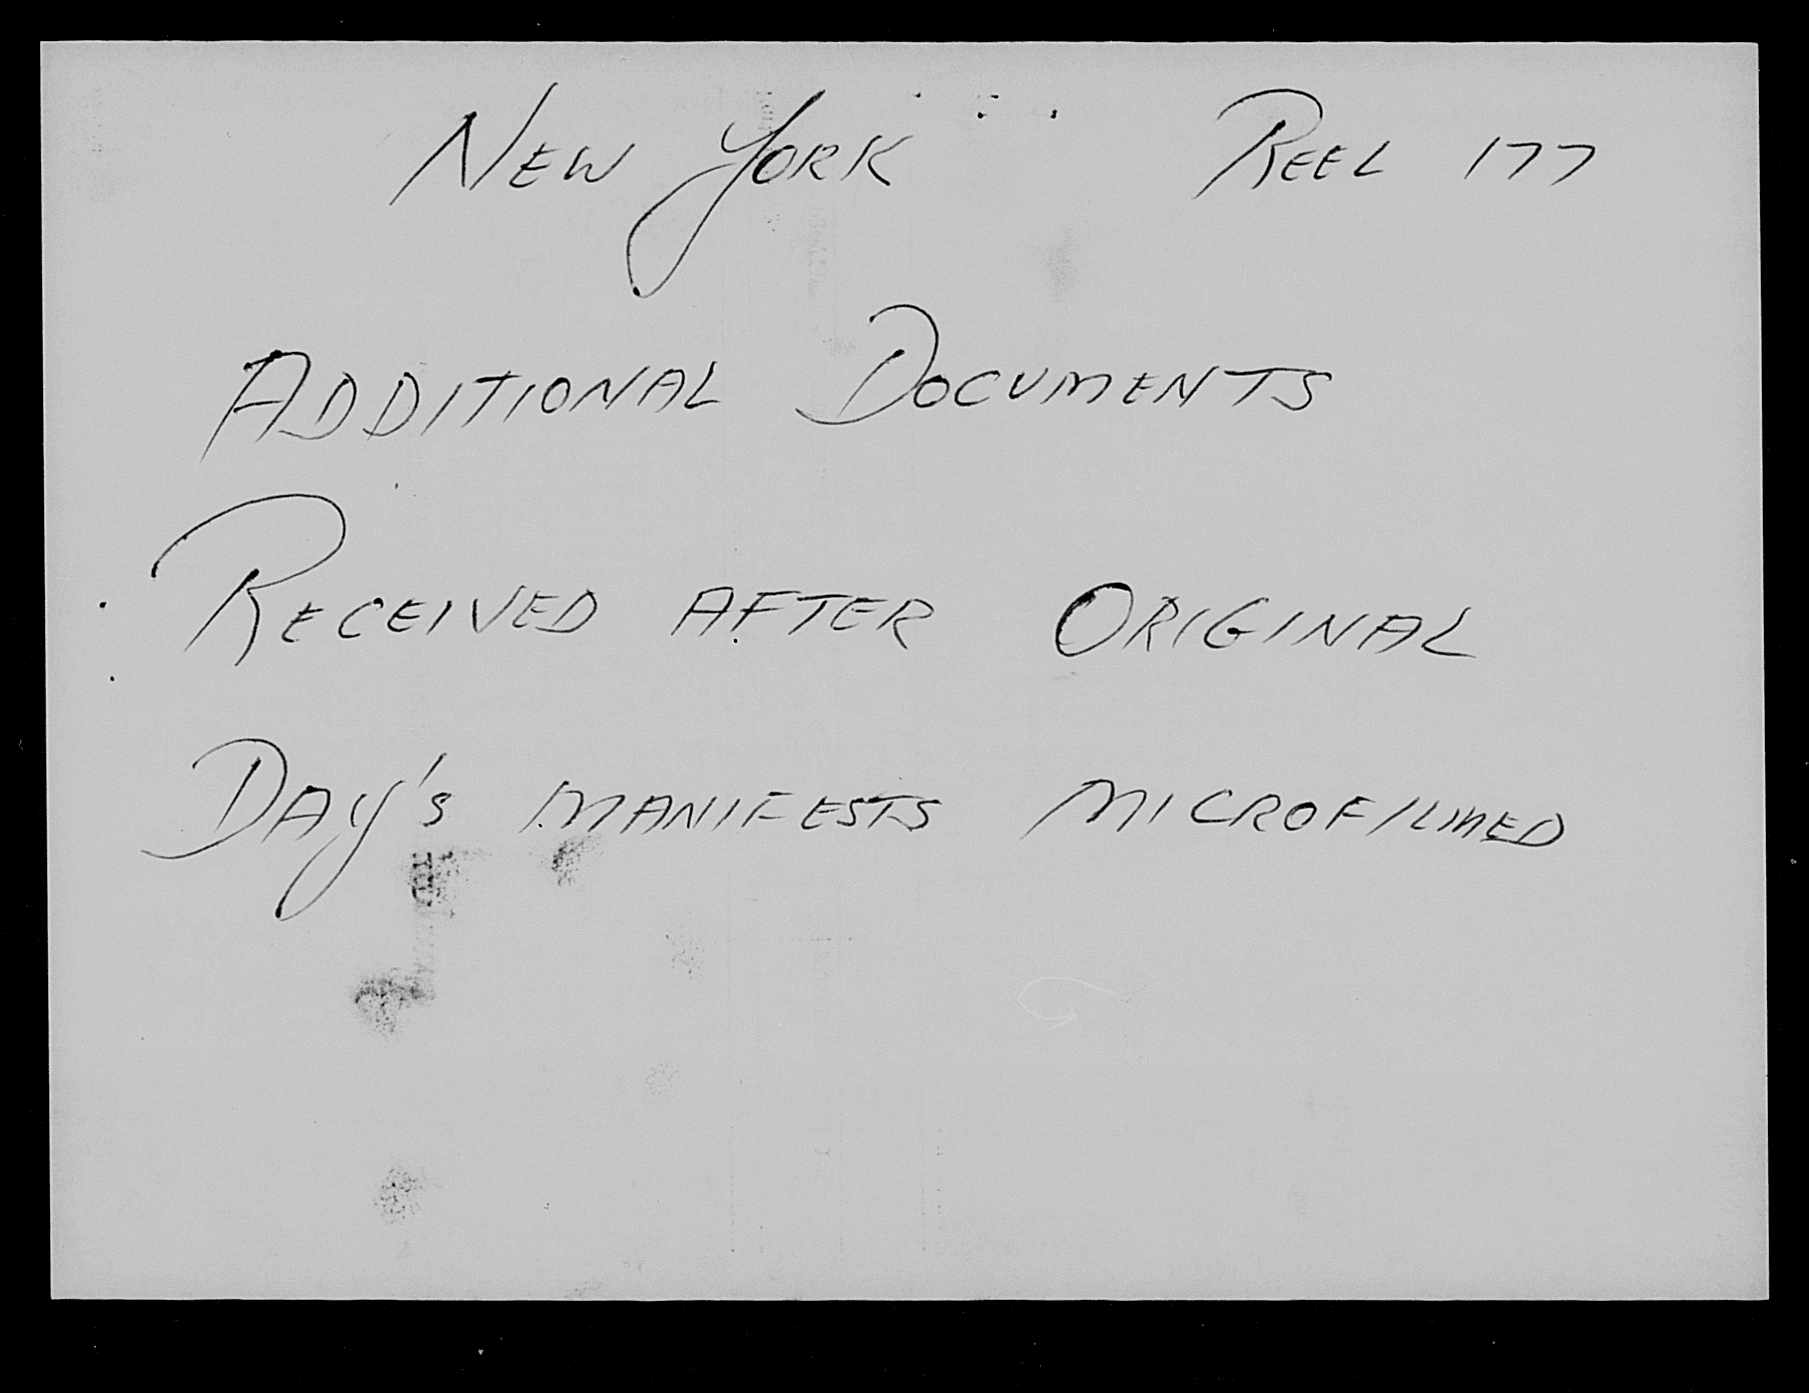 New York Reel 177
Additional Documents
Received after Original
Day's manifests microfilmed